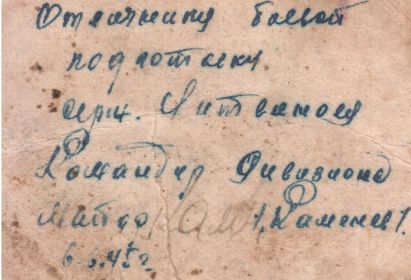 Отличнику боевой
подготовки
серж. Литвинову
Командир Дивизиона
Майор /. Каменев /.
6.6.45 г